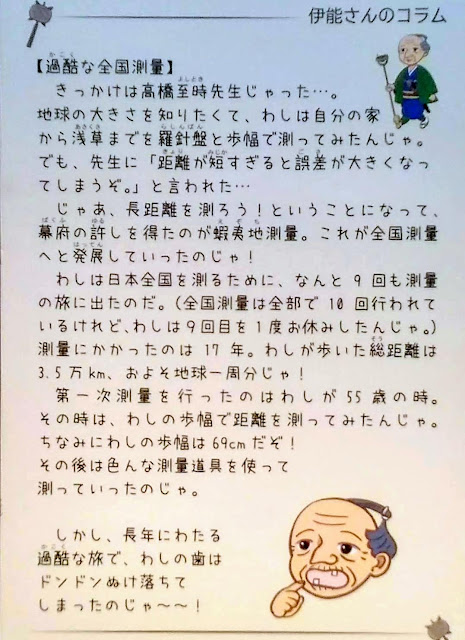 伊能さんのコラム
【過酷な全国測量】
きっかけは高橋至時先生じゃった…。
地球の大きさを知りたくて、わしは自分の家
から浅草までを羅針盤と歩幅で測ってみたんじゃ。
でも、先生に「距離が短すぎると誤差が大きくなっ
てしまうぞ。」と言われた…
じゃあ、長距離を測ろう！ということになって、
幕府の許しを得たのが蝦夷地測量。これが全国測量
へと発展していったのじゃ！
わしは日本全国を測るために、なんと9回も測量
の旅に出たのだ。（全国測量は全部で10回行われて
いるけれど、わしは9回目を1度お休みしたんじゃ。）
測量にかかったのは17年。わしが歩いた総距離は
3.5万km、およそ地球一周分じゃ！
第一次測量を行ったのはわしが55歳の時。
その時は、わしの歩幅で距離を測ってみたんじゃ。
ちなみにわしの歩幅は69cmだぞ！
その後は色んな測量道具を使って
測っていったのじゃ。
しかし、長年にわたる
過酷な旅で、わしの歯は
ドンドンぬけ落ちて
しまったのじゃ〜〜！